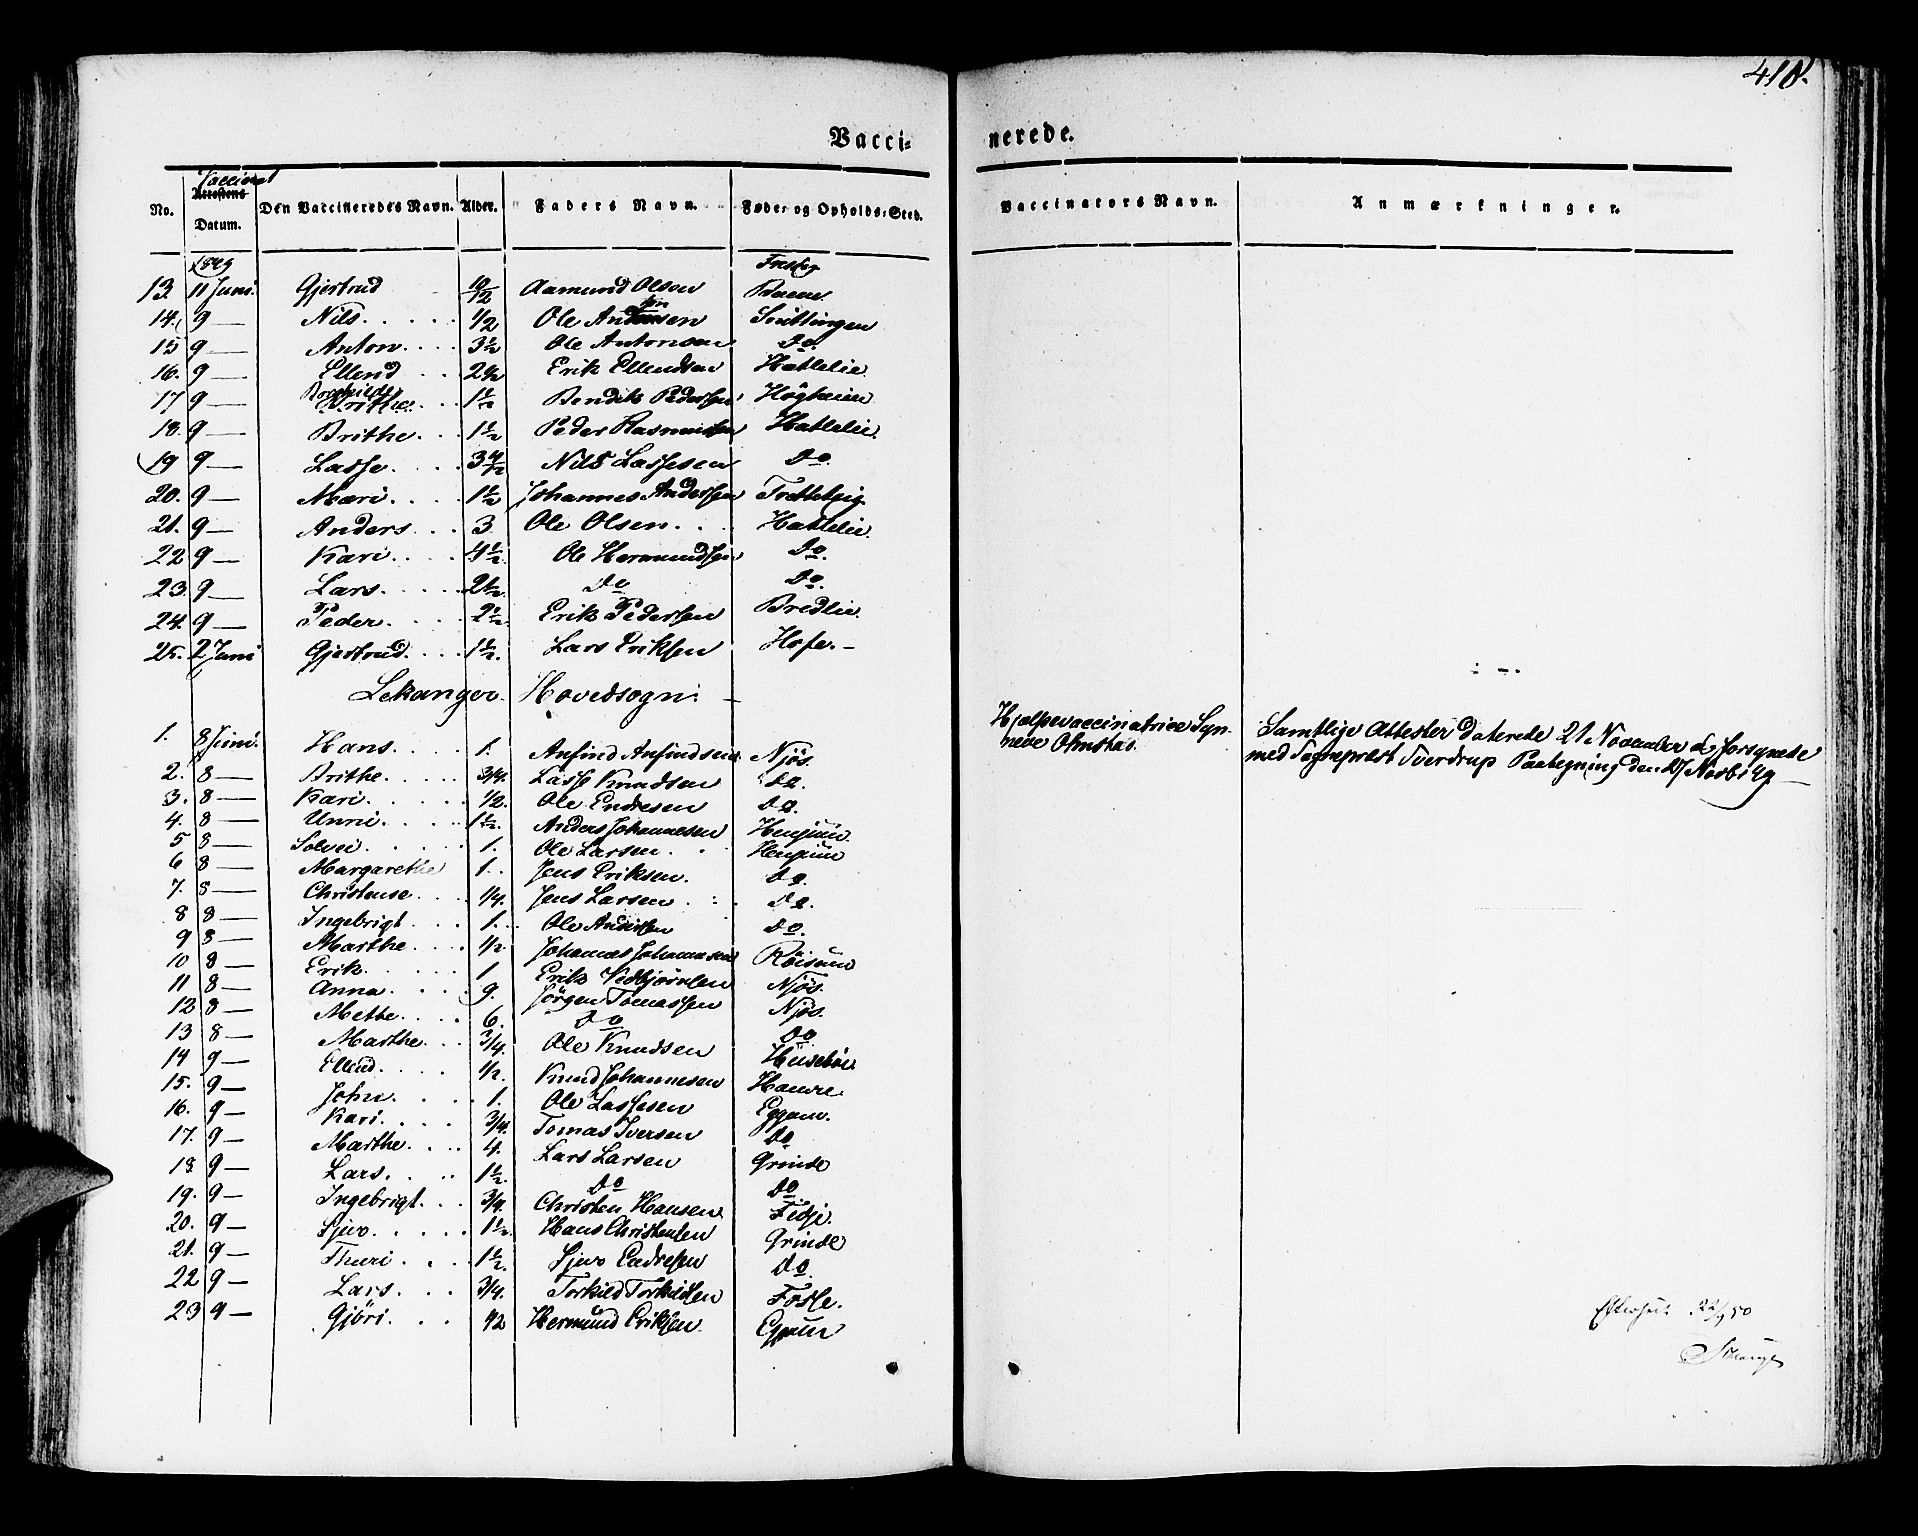 418.
Vacci- nerede.
No. Vaccinat Attestens Datum. Den Vaccineredes Navn. Alder. Faders Navn. Føde- og Opholds-Sted. Vaccinators Navn. Anmærkninger.
1849
13. 11 Juni. Gjertrud 10/12 Aamund Olsen
14. 9 — Nils. 1/2 Ole Andersen
15 9 — Anton. 3 1/2 Ole Antonsen Do.
16. 9 — Ellend 2 1/2 Erik Ellendsen Hatlelie
17 9 — Brithe. 1 1/2 Bendik Pedersen
18. 9 — Brithe. 1 1/2 Peder Rasmussen Hatlelie.
19 9 — Lasse. 3 Nils Lassesen Do.
20. 9 — Mari. 1 1/2 Johannes Andersen
21. 9 — Anders. 3 Ole Olsen. Hatlelie.
22 9 — Kari. 4 1/2 Ole Hermundsen Do.
23. 9 — Lars. 2 1/2. Do Do.
24. 9 — Peder. 2 1/2. Erik Pedersen Bredlie
25. 2 Juni Gjertrud. 1 1/2. Lars Eriksen
Lekanger Hovedsogn. —
1. 8 Juni. Hans. 1. Anfind Anfindsen. Njøs. Hjelpevaccinatrice Syn-
neve Olmstas. Samtlige Attester daterede 21. November & forsynede
med Sognepræst Tverdrup Paategning den 27 Novbr 49 —
2. 8 — Brithe. 3/4. Lasse Knudsen Do.
3. 8 — Kari. 1/2. Ole Endresen Do.
4. 8 — Unni. 1 1/2. Anders Johannesen Henjum.
5 8 — Solvei. 1. Ole Larsen. Henjum
6 8 — Margarethe 1. Jens Eriksen. Do.
7. 8 — Christense 1/4. Jens Larsen. Do.
8 8 — Ingebrigt. 1. Ole Andersen Do.
9 8 — Marthe. 1/2. Johannes Johannesen Røisum
10 8 — Erik. 1 Erik Vedbjørnsen Njøs.
11 8 — Anna. 9. Jørgen Tomassen Njøs.
12 8 — Mette. 6. Do Do
13 8 — Marthe. 3/4. Ole Knudsen Husebøe
14 9 — Ellend. 1/2. Knud Johannesen
15. 9 — John. 1. Ole Lassesen Eggum.
16. 9 — Kari. 3/4. Tomas Iversen Do
17. 9 — Marthe. 4. Lars Larsen Grinde
18 9 — Lars. 1 1/2. Do Do
19. 9 — Ingebrigt. 3/4. Christen Hansen Fedje.
20. 9 — Sjur. 1 1/2. Hans Christensen Grinde
21. 9 — Thuri 1 1/2. Sjur Endresen Do.
22 9 — Lars. 3/4. Torkild Torkildsen Fosse.
23 9 — Gjöri. 1/2 Hermund Eriksen. Eggum
Efterseet 22/9 50